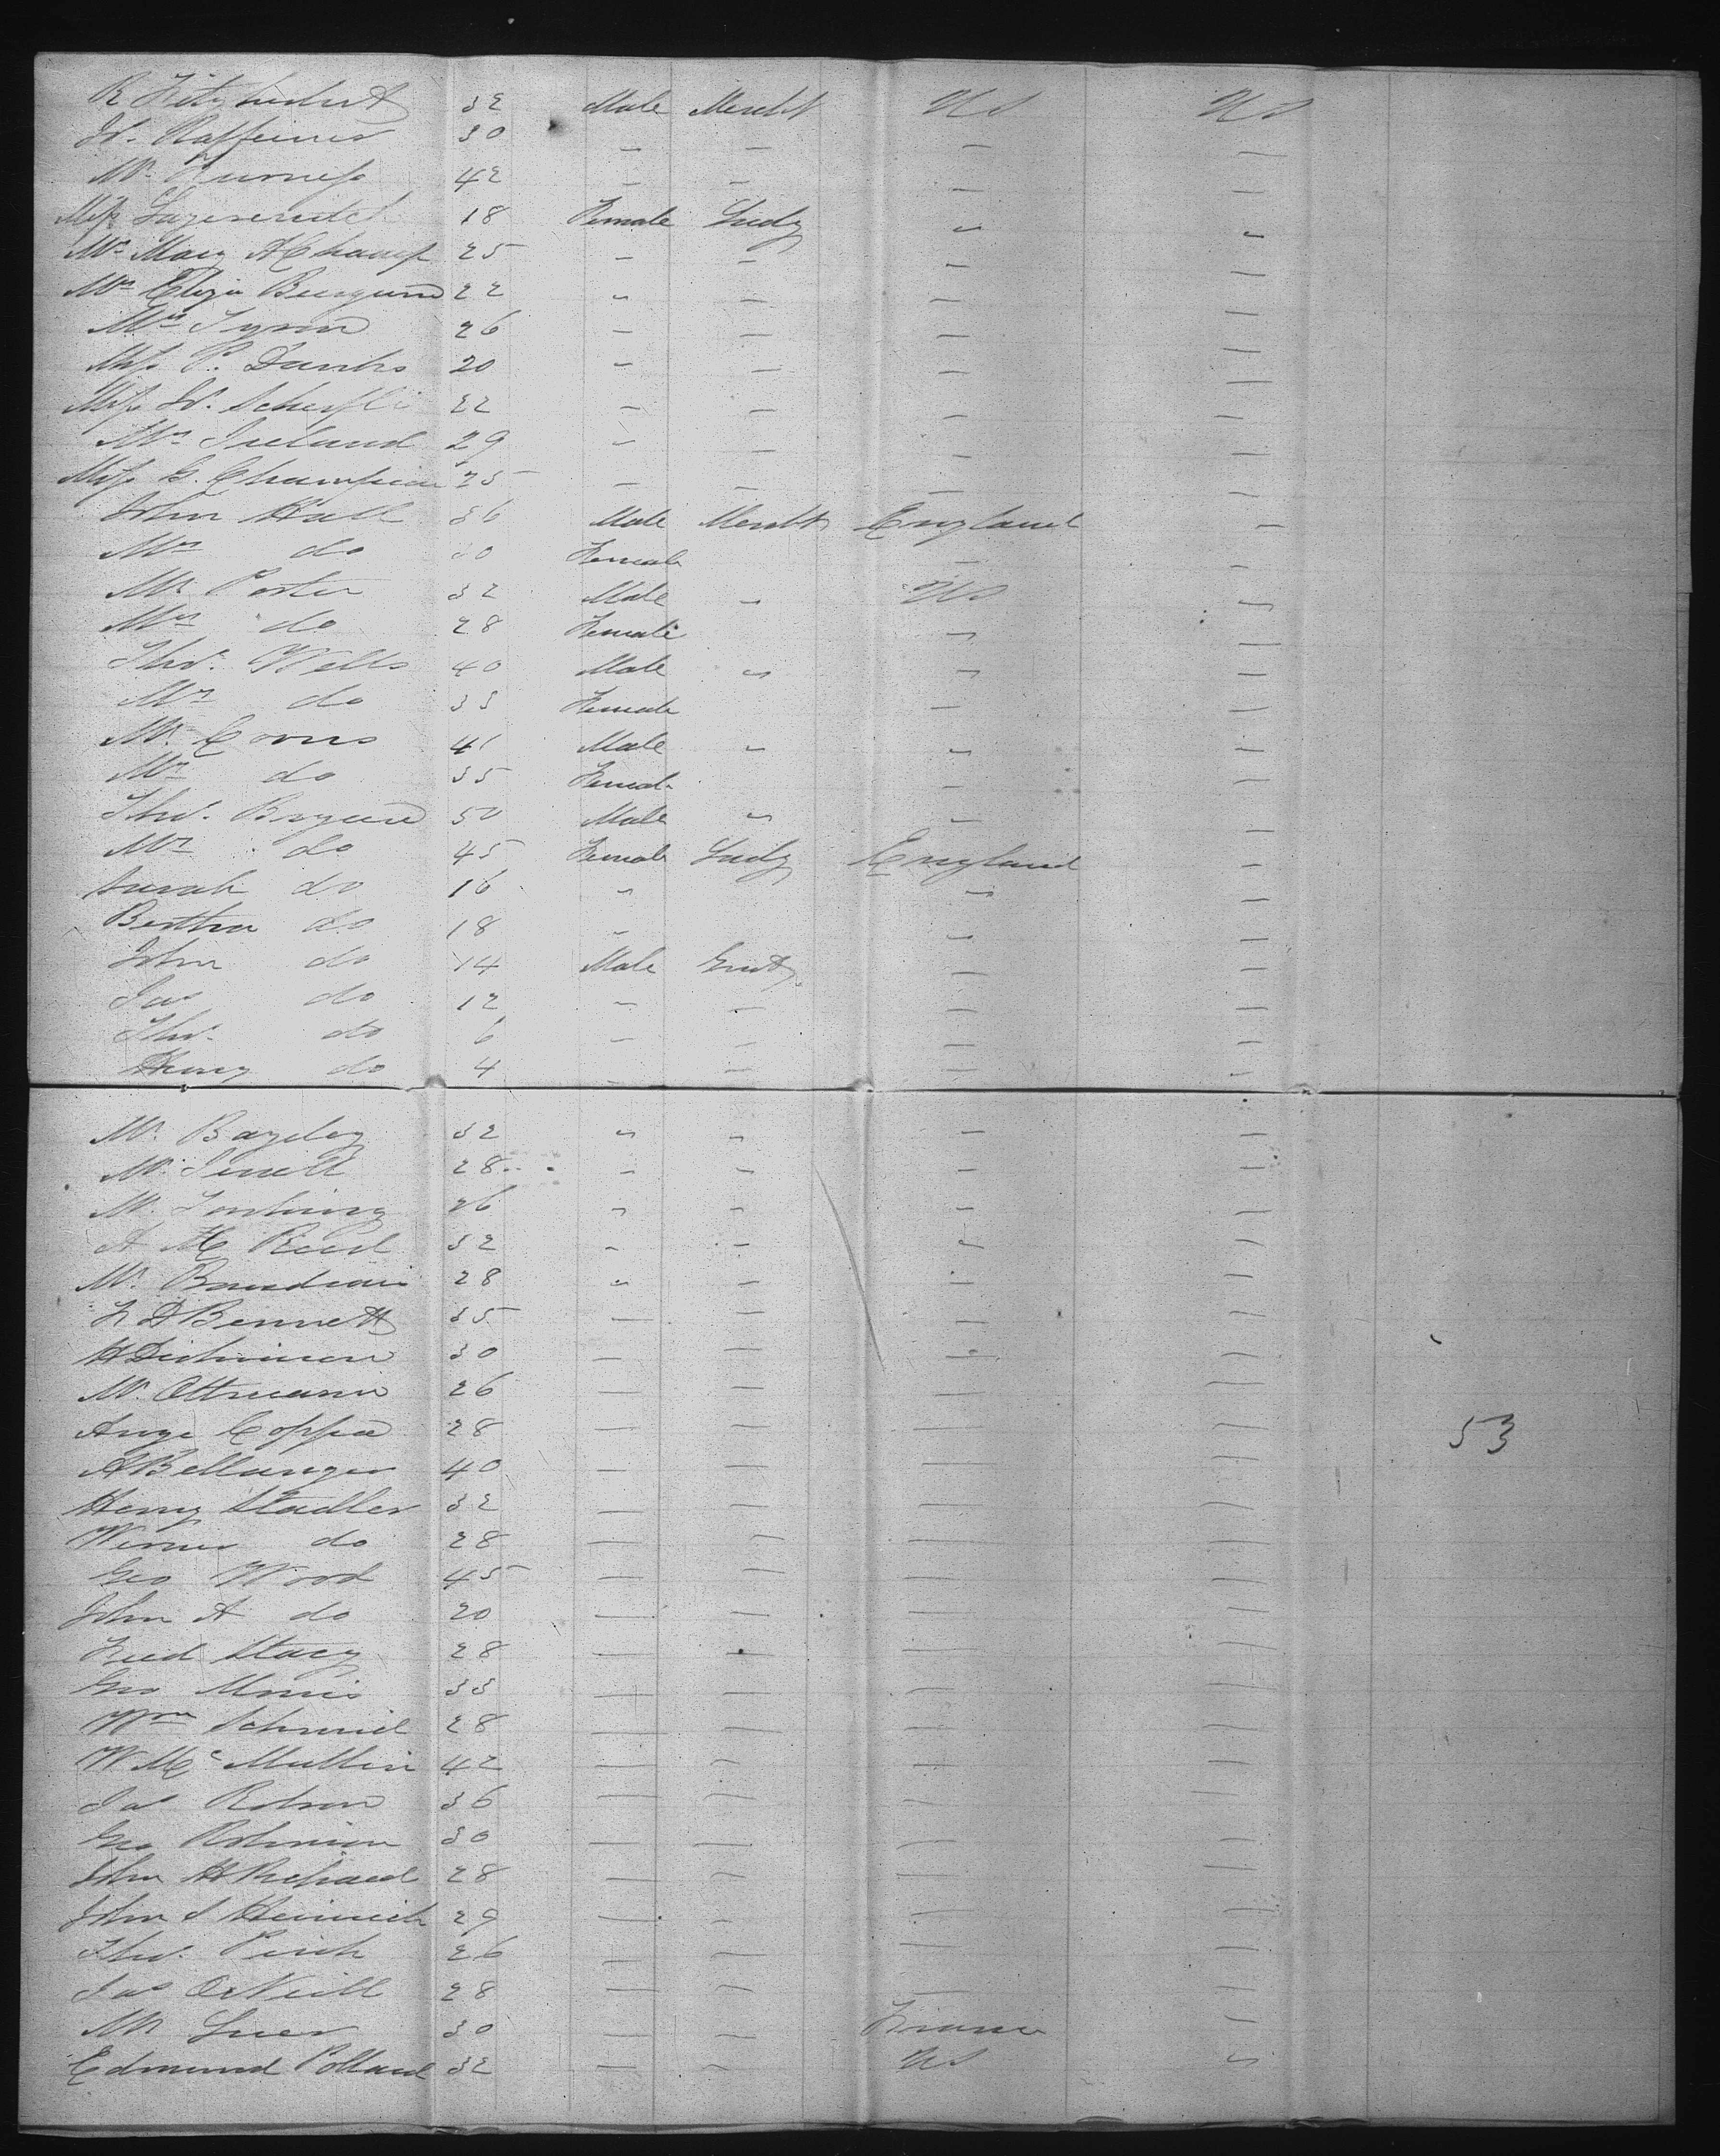 R Fitzhubert 32 Male Mercht US US
W. Raffeiner 30 — — — —
Mr. 42 — — — —
Miss 18 Female Lady " "
Mrs Mary A Champ 25 — — — —
Mrs Eliza 22 " — — —
Mrs 26 — — — —
Miss P. Danks 20 — — — —
Miss W. 22 — — — —
Mrs Ireland 29 — — — —
Miss G. Champion 25 — — — —
John Hall 36 Male Mercht England —
Mrs do 30 Female — —
Mr Porter 32 Male " US "
Mrs do 28 Female " —
Thos. Wells 40 Male " — —
Mrs do 33 Female — —
Mr. Corns 41 Male " " —
Mrs do 35 Female — —
Thos. 50 Male " — —
Mrs do 45 Female Lady England —
Sarah do 16 " " —
Bertha do 18 — — —
John do 14 Male Gent — —
Jas do 12 — — — —
Thos. do 6 — — — —
Henry do 4 — — — —
Mr. Bayley 32 " " — —
Mr. Jewell 28 — — — —
Mr. 26 " — — —
A Mc Reed 32 — — — —
Mr. 28 — — — —
F D Bennett 35 — — — —
H Dickinson 30 — — — —
Mr. Ottmann 26 — — — —
Ange Coppa 28 — — — —
53
A Bellanger 40 — — — —
Henry Stadler 32 — — — —
Werner do 28 — — — —
Geo Wood 45 — — — —
John A do 20 — — — —
Fred Stacy 28 — — — —
Geo Morris 33 — — — —
Wm Schmid 28 — — — —
W Mc Mullin 42 — — — —
Jas Robson 36 — — — —
Geo Robinson 30 — — — —
John H Richard 28 — — — —
John S Heinrich 29 — — — —
Thos. 26 — — — —
Jas O'Neill 28 — — — —
Mr 30 — — France —
Edmund Pollard 32 — — US "